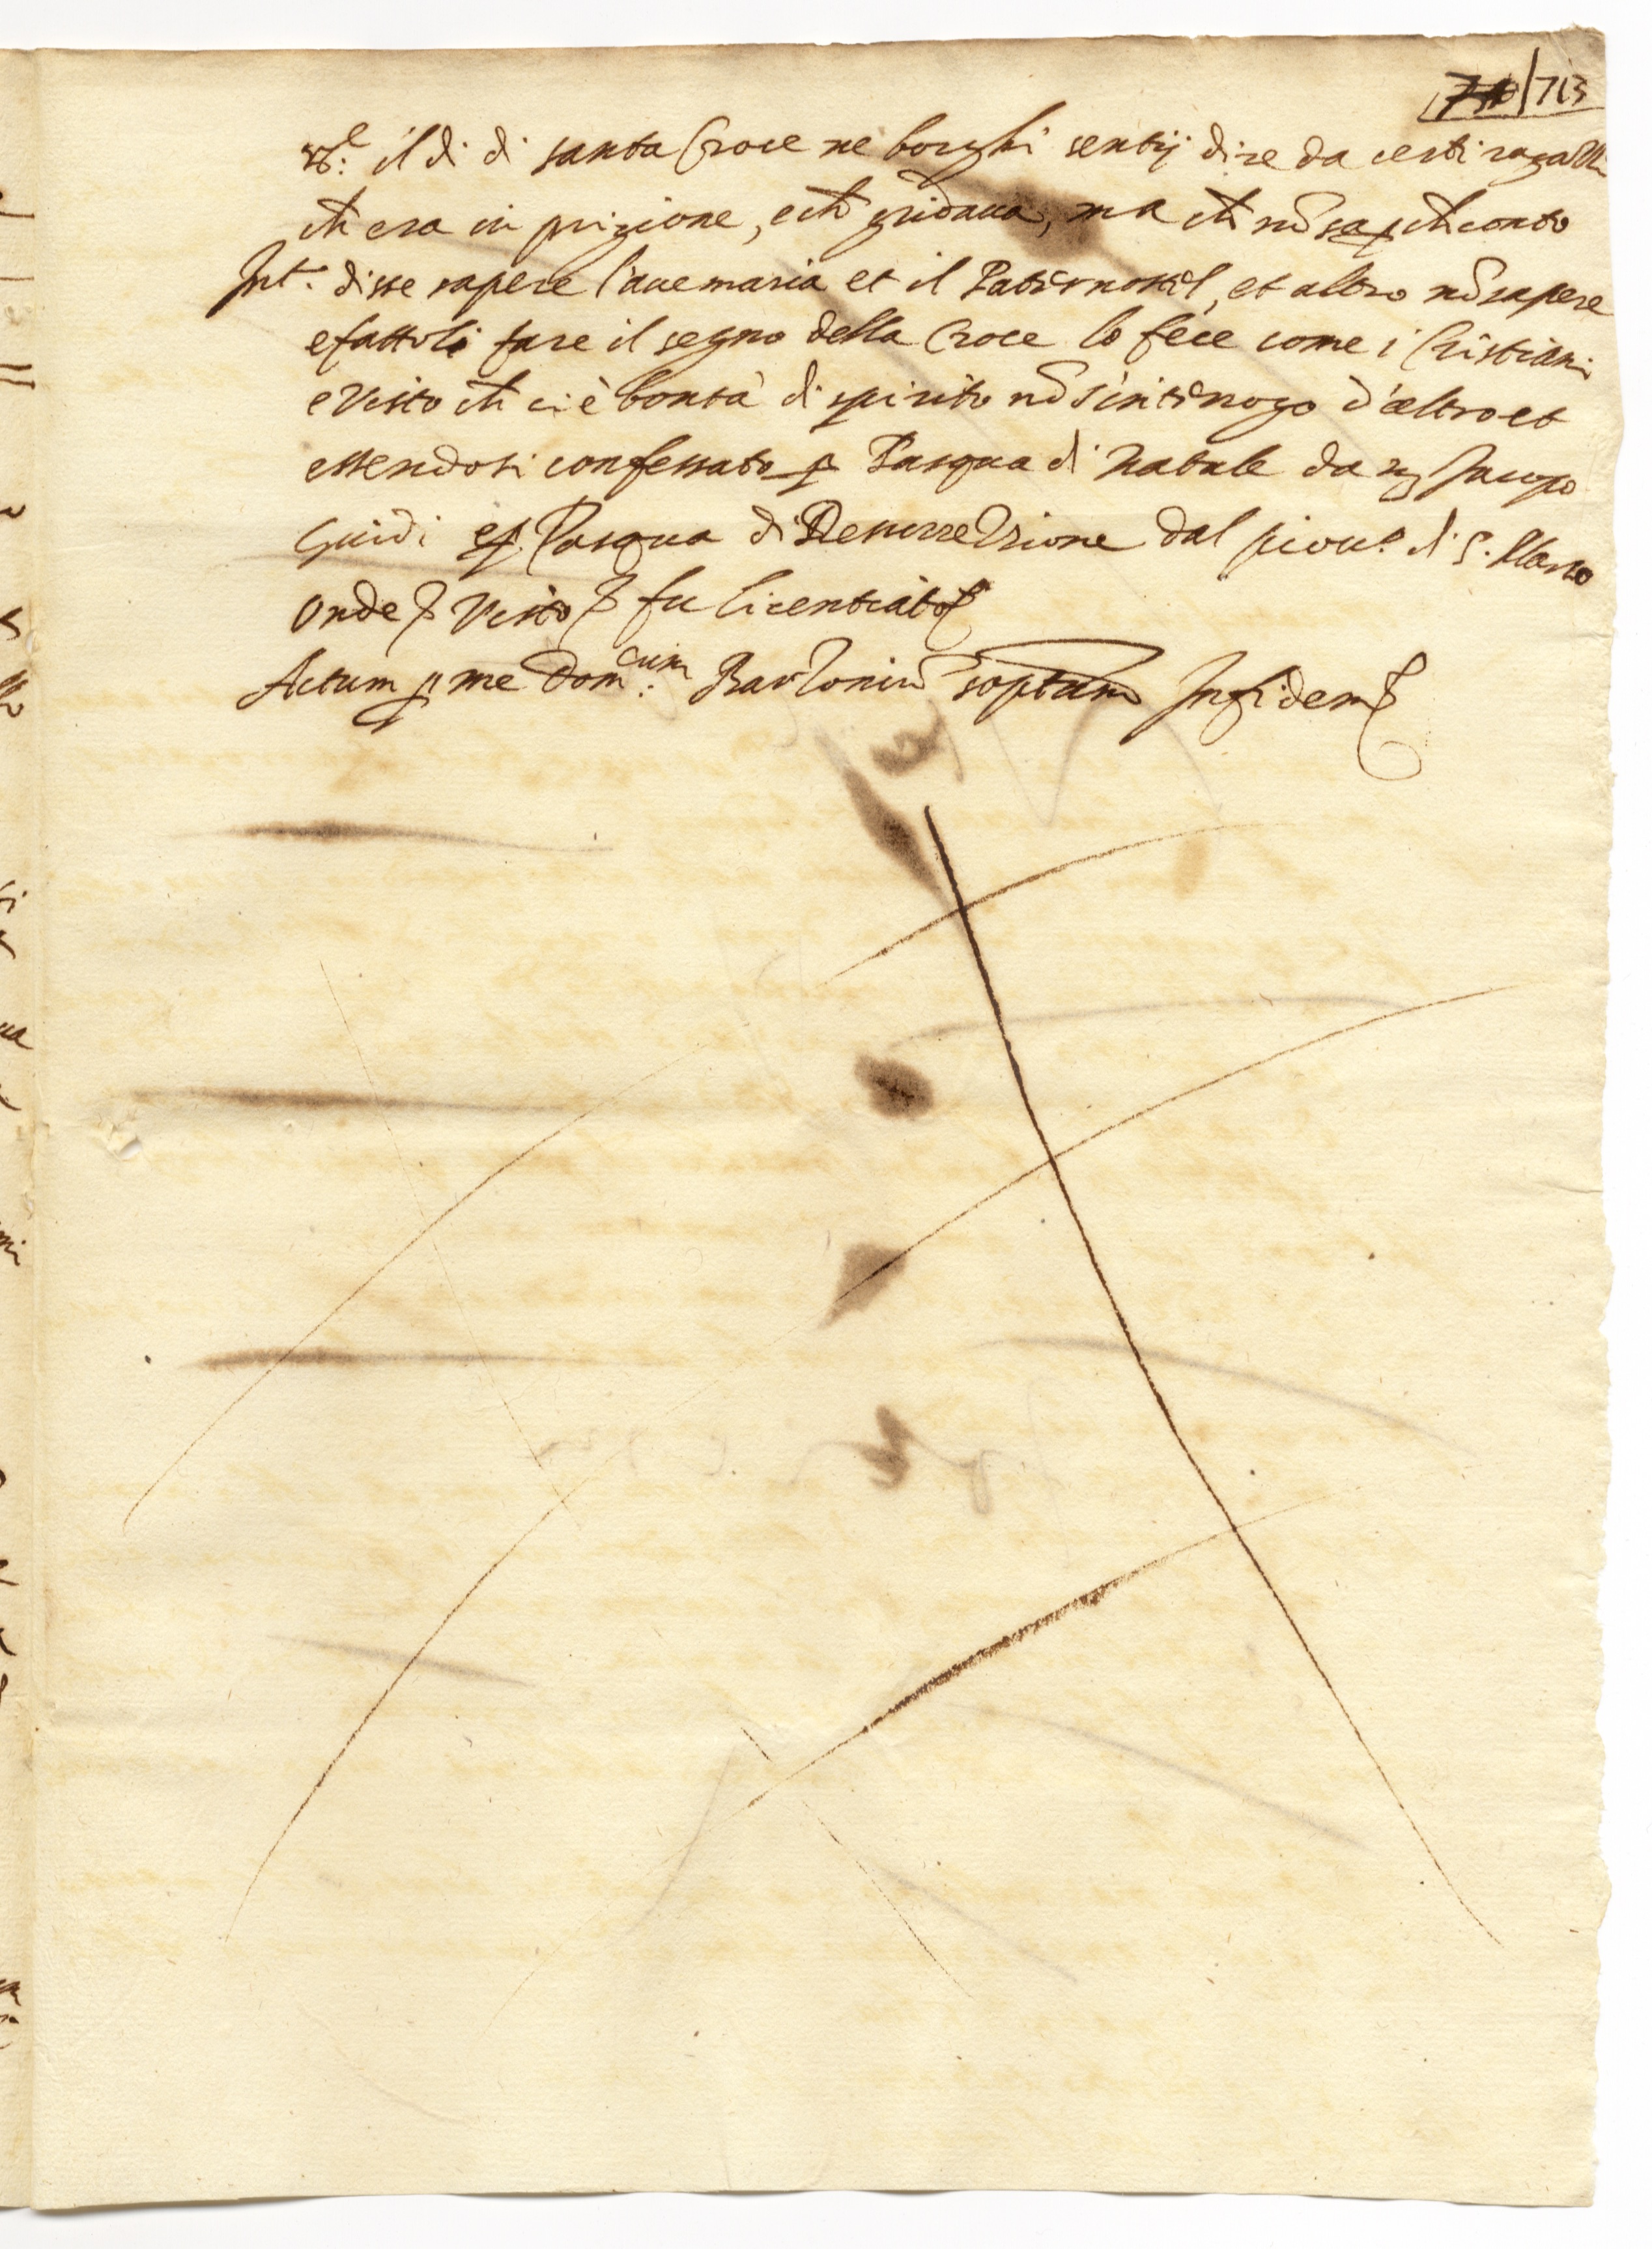 713
R.e il dì di santa Croce ne borghi sentij dire da certi ragazzi
ch era in prigione, e ch gridava, ma ch nō sa p ch conto
Int. disse sapere l'avemaria et il Paternoster, et altro nō sapere
e fattoli fare il segno della Croce lo fece come i Cristiani
e visto ch ci è bontà di spirito nō s'interrogo d'altro et
essendosi confessato p Pasqua di Natale da Jacopo
Guidi e p Pasqua di Resurretzione dal piou.o di S. Marco
Onde visto fu licentiato
Actum p me Dom.cum Bartoninū soptum In fidem